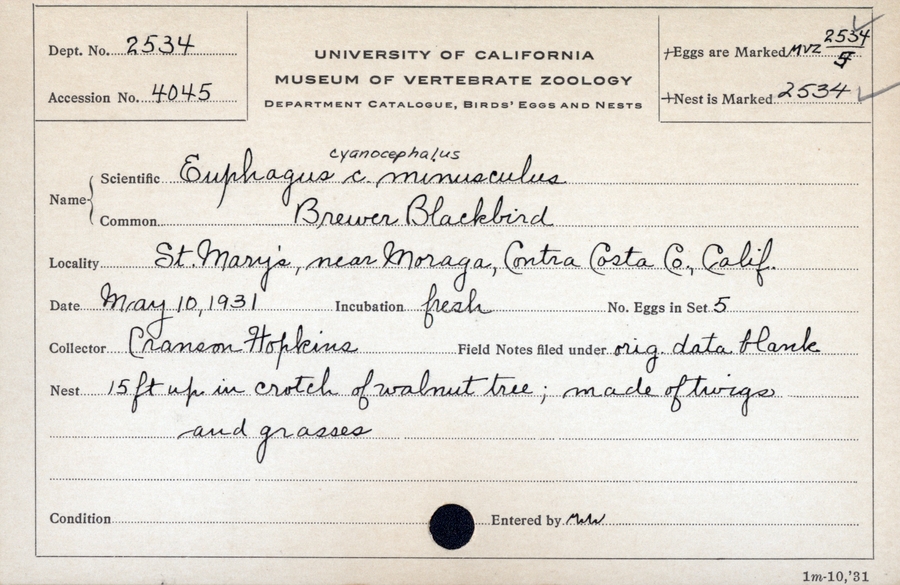 Dept. No. 2534
Accession No. 4045
UNIVERSITY OF CALIFORNIA
MUSEUM OF VERTEBRATE ZOOLOGY
DEPARTMENT CATALOGUE, BIRDS' EGGS AND NESTS
Eggs are Marked MVZ 2534/5
Nest is Marked 2534
cyanocephalus
Name Scientific Euphagus c. minusculus
Common Brewer Blackbird
Locality St. Mary's, near Moraga, Contra Costa Co., Calif.
Date May 10, 1931 Incubation fresh No. Eggs in Set 5
Collector Cranson Hopkins Field Notes filed under orig. data blank
Nest 15 ft up in crotch of walnut tree; made of twigs
and grasses
Condition Entered by
1m-10,'31